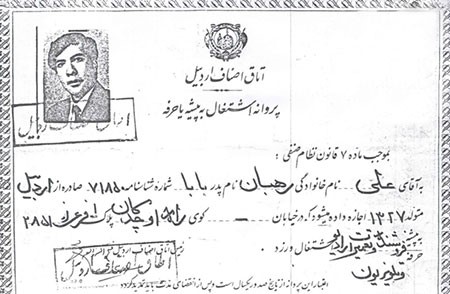 اتاق اصناف اردبیل
پروانه اشتغال به پیشه یا حرفه
اتاق اصناف اردبیل
بموجب ماده ۷ قانون نظام صنفی :
به آقای علی نام خانوادگی رهبان نام پدر بابا شماره شناسنامه ۷۱۸۵۰ صادره از اردبیل
متولد ۱۳۲۷ اجازه داده میشود که در خیابان — کوی راه اوچدکان پلاک
به پیشه فروشندگی و تعمیرات رادیو اشتغال ورزد .
حرفه
وتلویزیون
رئیس اتاق اصناف اردبیل
اعتبار این پروانه از تاریخ صدور یکسال است و پس از انقضای مدت باید تجدید گردد